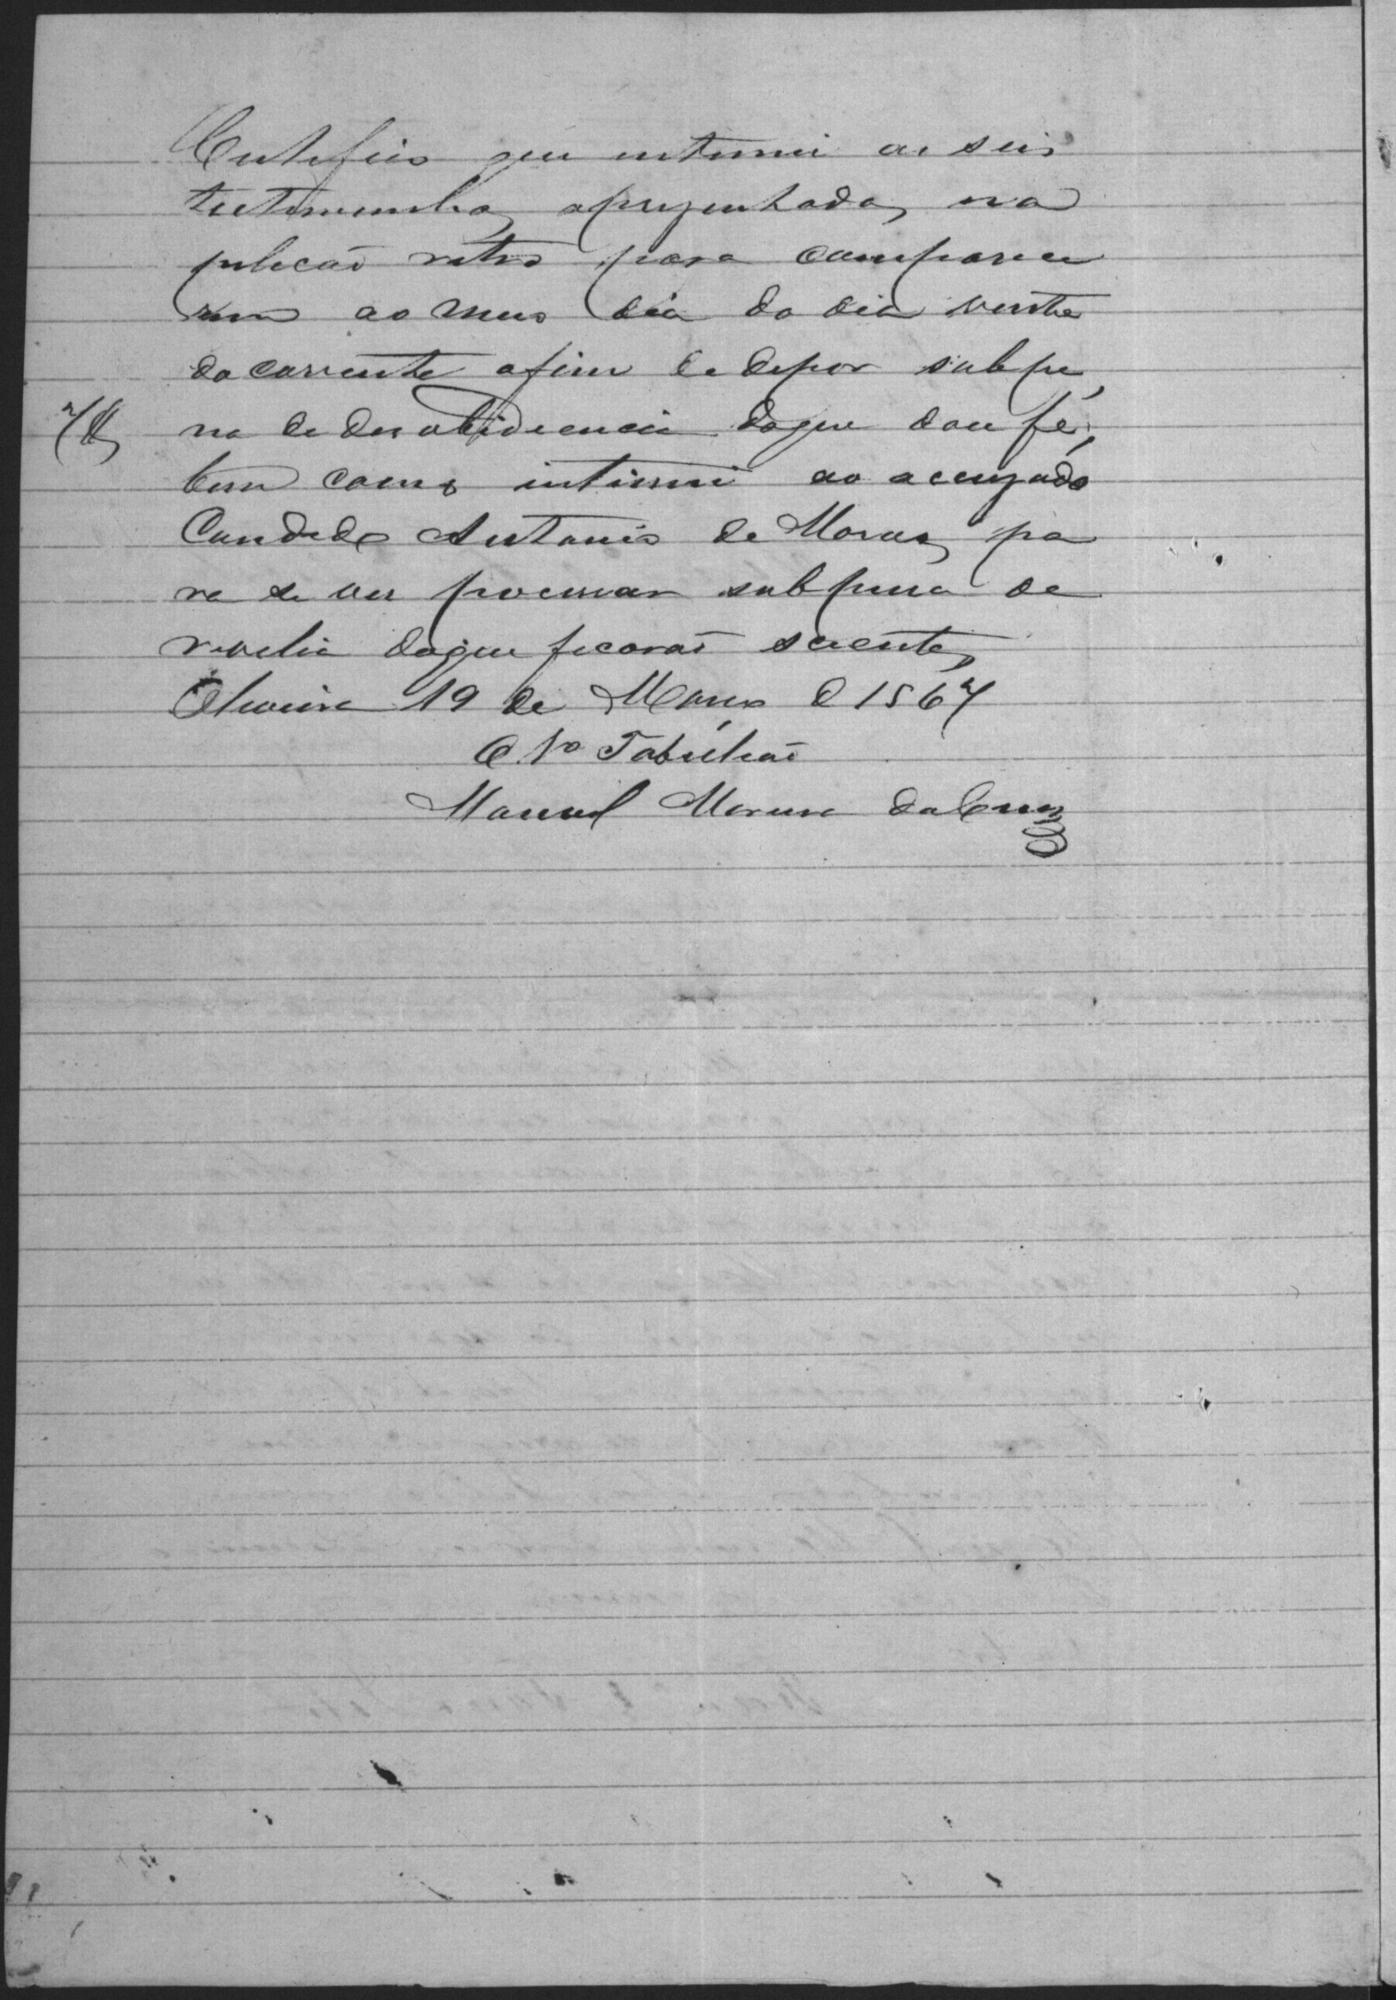 Certefico que intimei as seis
testimunhas aprezentadas na
petecaõ retro para comparece
rem ao meio dia do dia vinte
do corrente afim de depor subpe
na de desobidiencia doque dou fé,
bem como intimei ao acuzado
Candido Antonio de Moraes pa
ra se ver processar subpena de
revelia doque ficaraõ scientes
Oliveira 19 de Março d 1867
O 1º Tabeliaõ
Manoel Moreira da Cruz